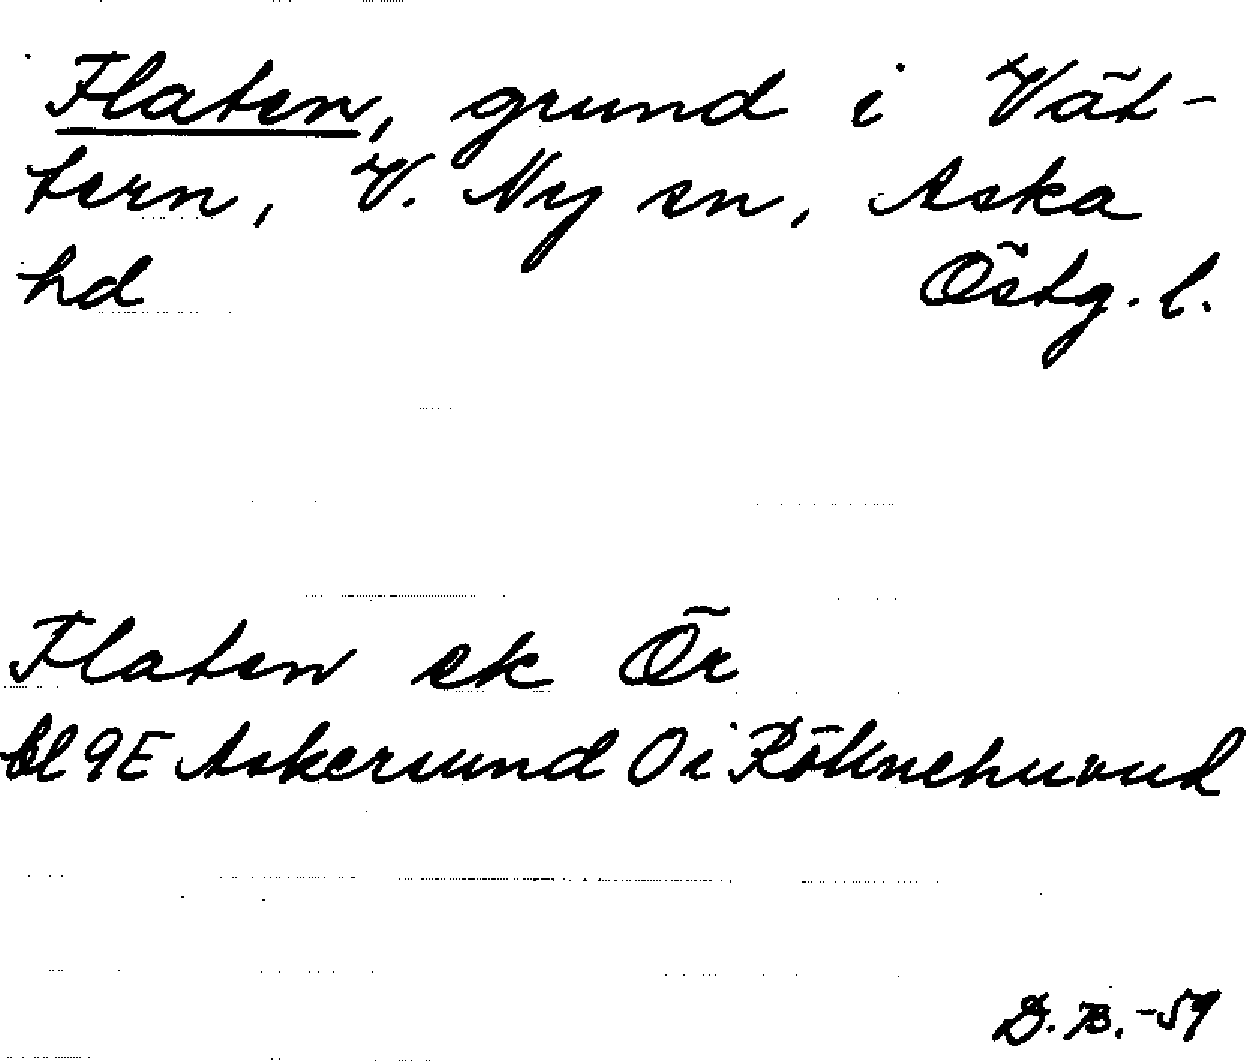 Flaten, grund i Vät-
tern, V. Ny sn, Aska
hd Östg. l.
Flaten ek Ör
bl 9E Askersund O i Röknehuvud
D. B. -59